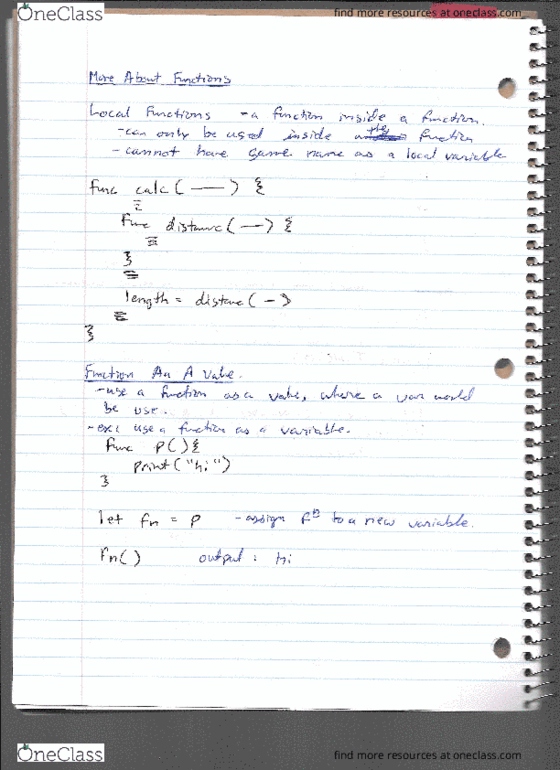 OneClass
find more resources at oneclass.com
More About Functions
Local Functions - a function inside a function.
- can only be used inside the function
- cannot have same name as a local variable
func calc( — ) {
func distance( — ) {
}
length = distance( - )
}
Function As A Value.
- use a function as a value, where a var would
be use.
- ex: use a function as a variable.
func p(){
print("hi")
}
let fn = p - assign fⁿ to a new variable.
fn() output : hi
OneClass
find more resources at oneclass.com